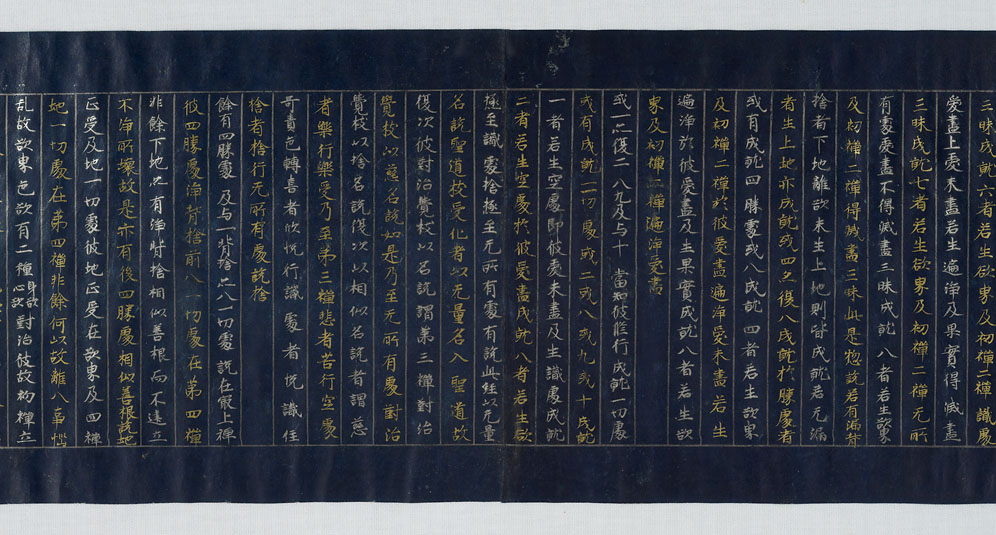 三昧成就六者若生欲界及初禪二禪識處
愛盡上愛未盡若生遍淨及果實得滅盡
三昧成就七者若生欲界及初禪二禪无所
有處愛盡不得滅盡三昧成就八者若生欲界
及初禪二禪得滅盡三昧此是惣說若有漏背
捨者下地離欲未生上地則皆成就若无漏
者生上地亦成就或四又復八成就於勝處者
或有成就四勝處或八成就四者若生欲界
及初禪二禪於彼愛盡遍淨愛未盡若生
遍淨於彼愛盡及生果實成就八者若生欲
界及初禪二禪遍淨愛盡
或一二復二八九及与十 當知彼脩行成就一切處
或有成就一一切處或二或八或九或十成就
一者若生空處即彼愛未盡及生識處成就
二者若生空處於彼愛盡成就八者若生欲
極至識處捨極至无所有處有說此經以无量
名說聖道枝受化者以无量名入聖道故
復次彼對治覺枝以名說謂第三禪對治
覺枝以慈名說如是乃至无所有處對治
覺枝以捨名說復次以相似名說者謂慈
者樂行樂受乃至第三禪悲者苦行空處
呵責色轉喜者欣悅行識處者悅識住
捨者捨行无所有處說捨
餘有四勝處 及与一背捨亦八一切處 說在㝡上禪
彼四勝處淨背捨前八一切處在第四禪
非餘下地亦有淨背捨相似善根而不違立
不淨所壞故是亦有後四勝處相似善根統地
正受及地一切處彼地正受在欲界及四禪
地一切處在第四禪非餘何以故離八事惱
乱故欲界色欲有二種身欲心欲對治彼故初禪立